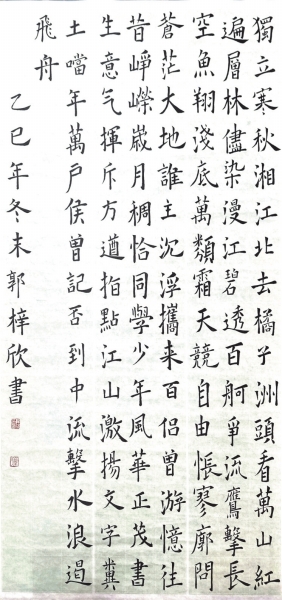 獨立寒秋湘江北去橘子洲頭看萬山紅
遍層林儘染漫江碧透百舸爭流鷹擊長
空魚翔淺底萬類霜天競自由悵寥廓問
蒼茫大地誰主沉浮攜来百侣曾游憶往
昔崢嶸嵗月稠恰同學少年風華正茂書
生意气揮斥方遒指點江山激揚文字糞
土噹年萬戶侯曾記否到中流擊水浪遏
飛舟
乙巳年冬末郭梓欣書